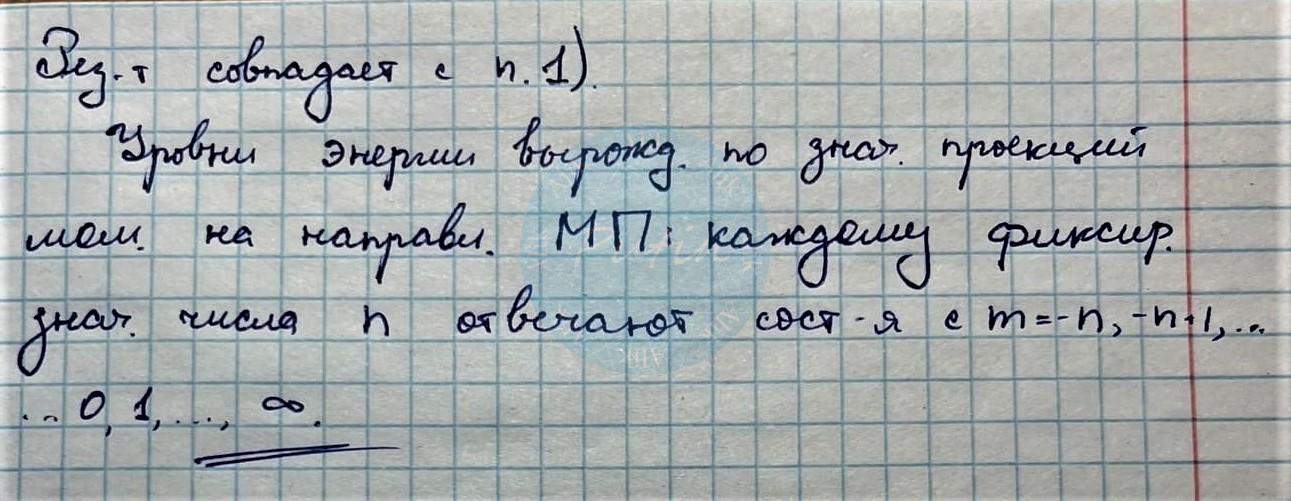 Рез-т совпадает с п. 1).
Уровни энергии вырожд. по знач. проекций
мом. на направл. МП: каждому фиксир.
знач. числа n отвечают сост-я с m=-n, -n+1, ...
... 0, 1, ..., ∞.